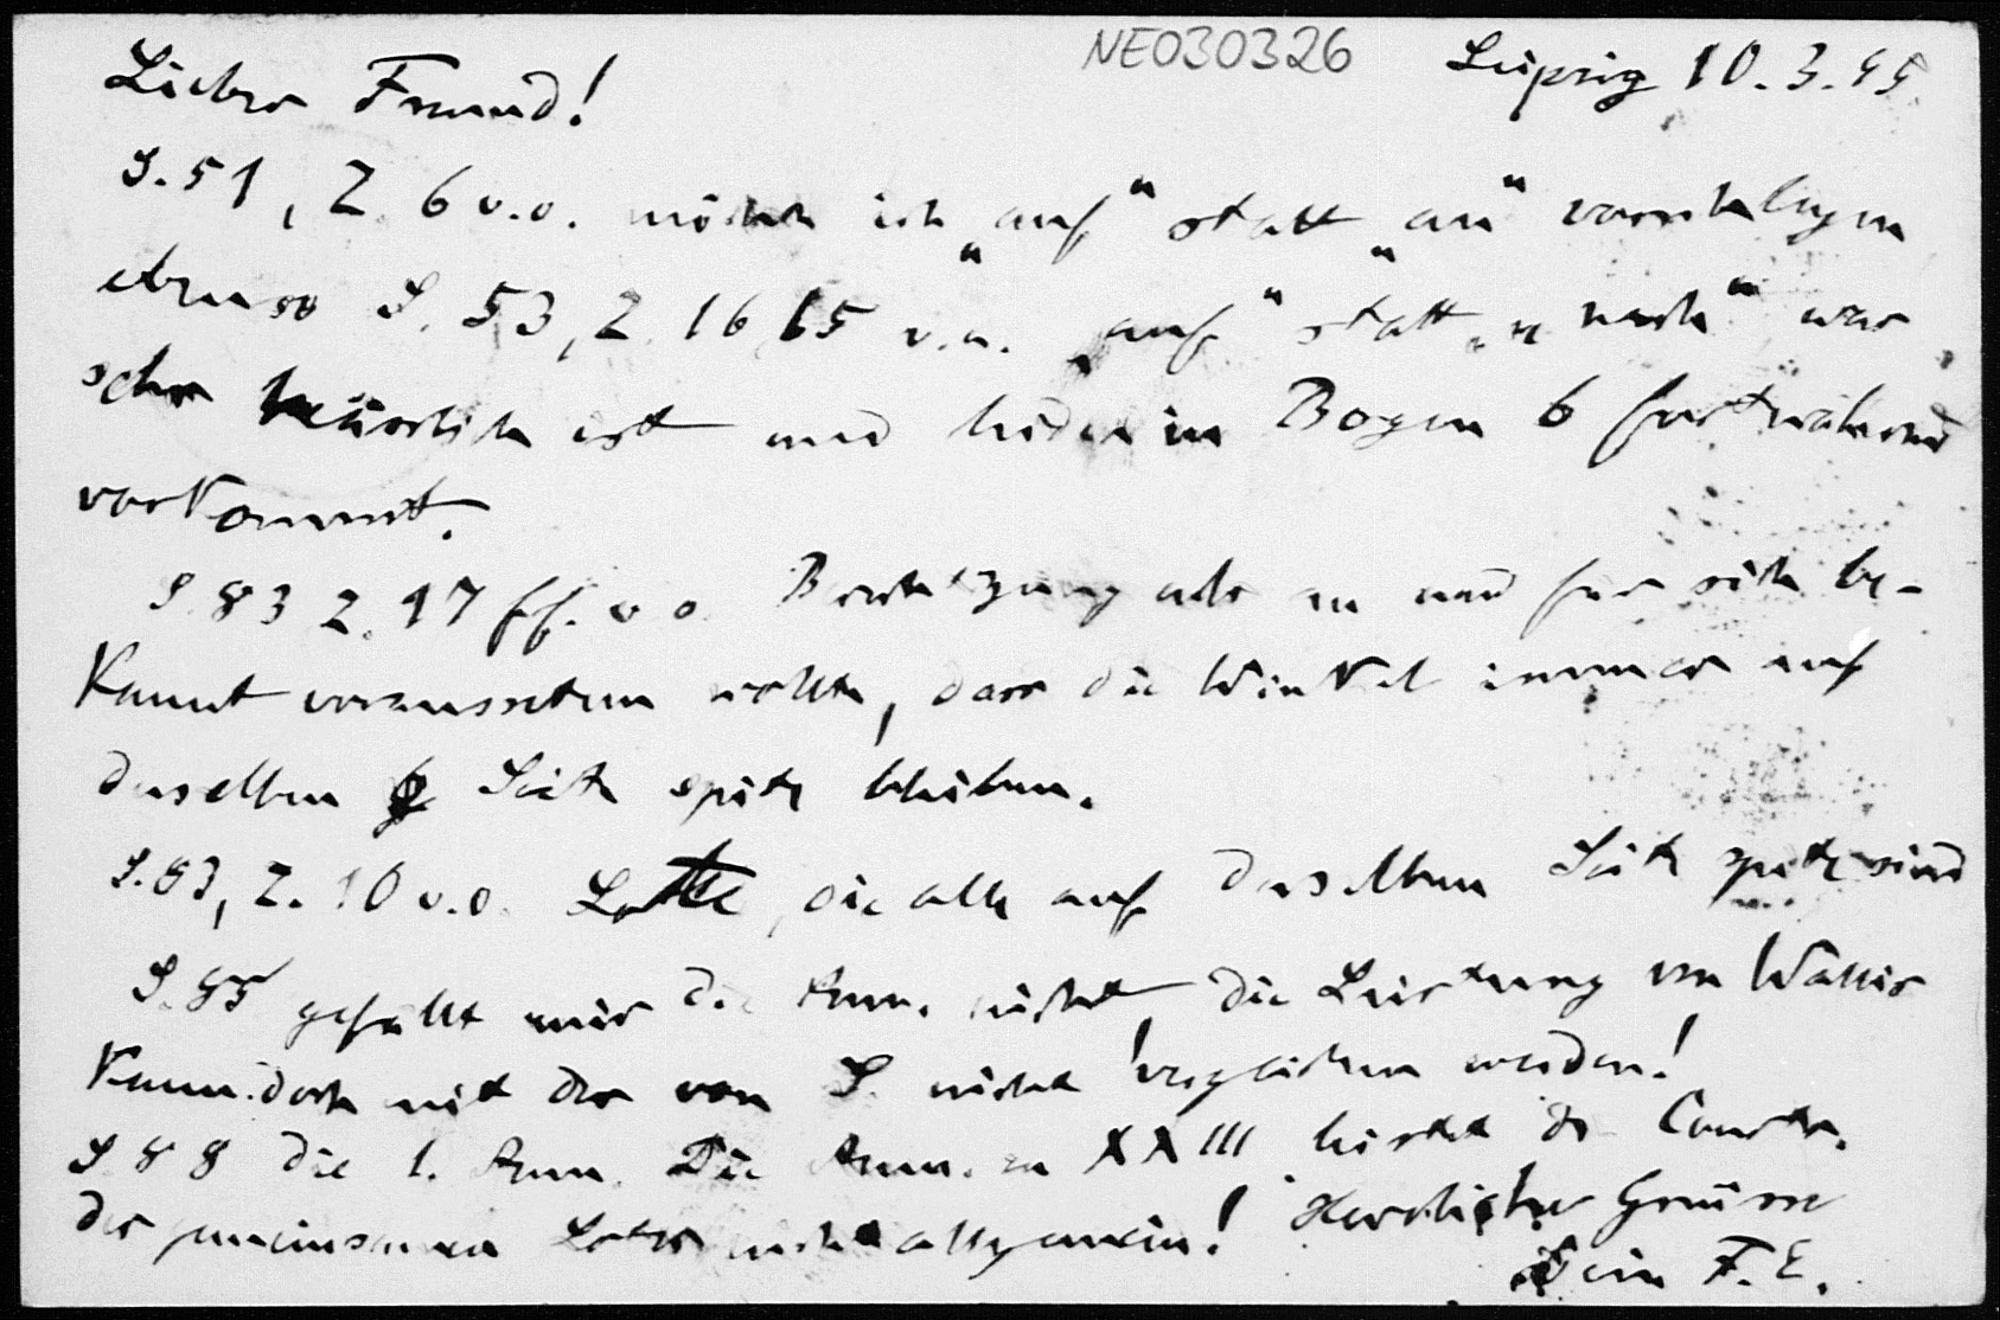 NE030326 Leipzig 10.3.95.
Lieber Freund!
S. 51, Z. 6 v.o. möchte ich „auf“ statt „an“ vorschlagen
ebenso S. 53, Z. 16, 15 v.u. „auf“ statt „nach“ was
sehr hässlich ist und leider in Bogen 6 fortwährend
vorkommt.
S. 83 Z. 17 ff. v. o. an und für sich be-
kannt voraussetzen wollte, dass die Winkel immer auf
derselben Seite spitz bleiben.
S. 83, Z. 10 v.o. Lotte, die alle auf derselben Seite spitz sind
S. 85 gefällt mir die Anm. nicht, die Leistung von Wallis
kann doch mit der von S. nicht verglichen werden!
S 88 die 1. Anm. Die Anm. zu XXIII leistet die Constr.
des gemeinsamen Lotes nicht allgemein! Herzliche Grüsse
Dein F. E.